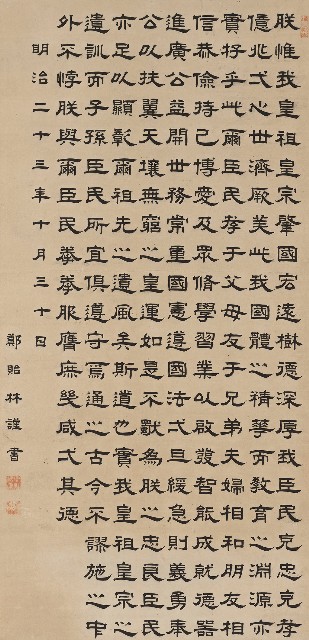 朕惟我皇祖皇宗肇國宏遠樹德深厚我臣民克忠克孝
億兆弌心世濟厥美此我國體之精華而教育之淵源亦
實存乎此爾臣民孝于父母友于兄弟夫婦相和朋友相
信恭儉持己博愛及眾修學習業以啟發智能成就德器
進廣公益開世務常重國憲遵國法弌旦緩急則義勇奉
公以扶翼天壤無窮之皇運如是不獨為朕之忠良臣民
亦足以顯彰爾祖先之遺風矣斯道也實我皇祖皇宗之
遺訓而子孫臣民所宜俱遵守焉通之古今不謬施之中
外不悖朕與爾臣民拳拳服膺庶幾咸弌其德
明治二十三年十月三十日
鄭貽林謹書